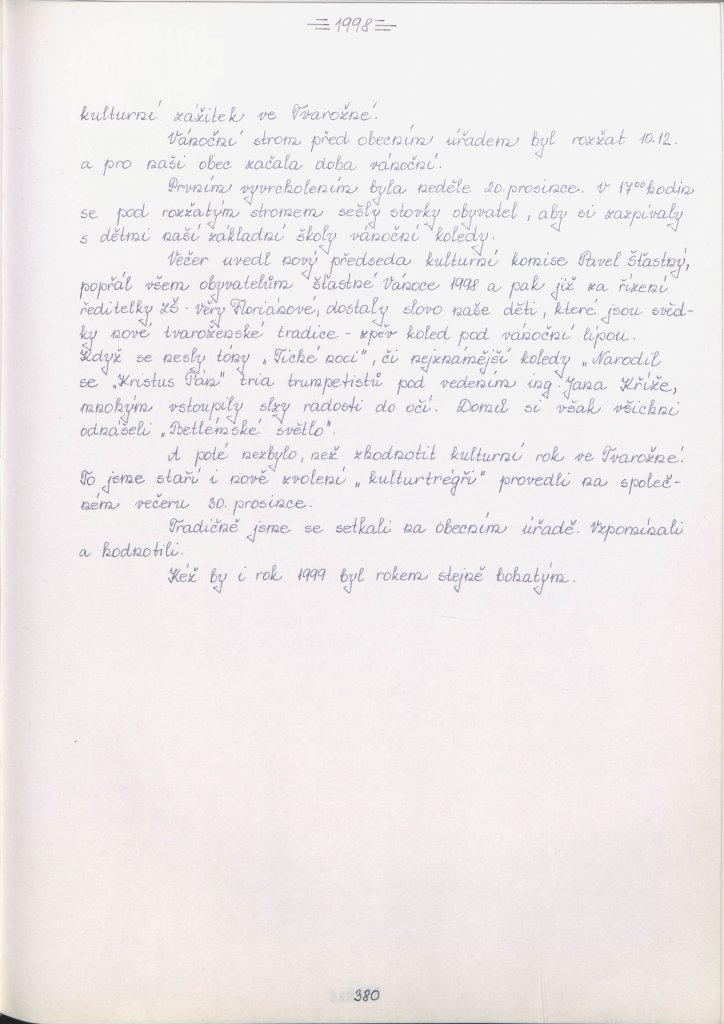 1998
kulturní zážitek ve Tvarožné.
Vánoční strom před obecním úřadem byl rozžat 10.12.
a pro naši obec začala doba vánoční.
Prvním vyvrcholením byla neděle 20. prosince. V 17⁰⁰ hodin
se pod rozžatým stromem sešly stovky obyvatel, aby si zazpívaly
s dětmi naší základní školy vánoční koledy.
Večer uvedl nový předseda kulturní komise Pavel Šťastný,
popřál všem obyvatelům šťastné Vánoce 1998 a pak již za řízení
ředitelky ZŠ - Věry Floriánové, dostaly slovo naše děti, které jsou svěd-
ky nové tvaroženské tradice - zpěv koled pod vánoční lípou.
Když se nesly tóny „Tiché noci", či nejznámější koledy „Narodil
se „Kristus Pán" tria trumpetistů pod vedením ing. Jana Kříže,
mnohým vstoupily slzy radosti do očí. Domů si však všichni
odnášeli „Betlémské světlo".
A poté nezbylo, než zhodnotit kulturní rok ve Tvarožné.
To jsme staří i nově zvolení „kulturtrégři" provedli na společ-
ném večeru 30. prosince.
Tradičně jsme se setkali na obecním úřadě. Vzpomínali
a hodnotili.
Kéž by i rok 1999 byl rokem stejně bohatým.
380